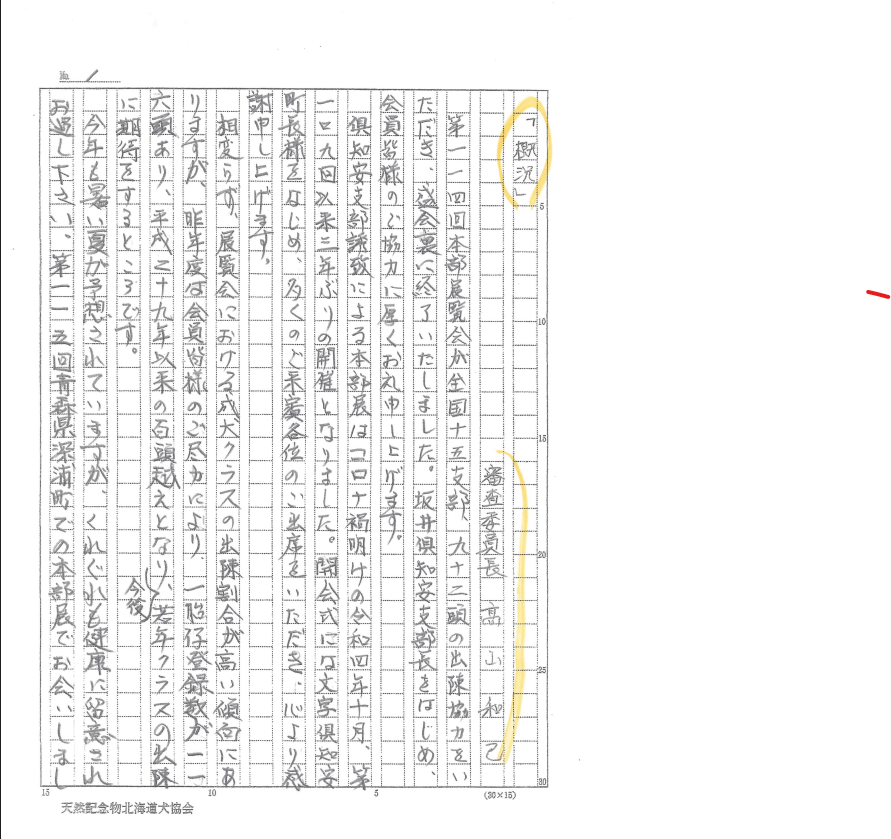 No. 1
「概況」
審査委員長 高山和己
第一一四回本部展覧会が全国十五支部、九十二頭の出陳協力をい
ただき、盛会裏に終了いたしました。坂井倶知安支部長をはじめ、
会員皆様のご協力に厚くお礼申し上げます。
倶知安支部誘致による本部展はコロナ禍明けの令和四年十月、第
一〇九回以来三年ぶりの開催となりました。開会式には文字倶知安
町長様をはじめ、多くのご来賓各位のご出席をいただき、心より感
謝申し上げます。
相変らず、展覧会における成犬クラスの出陳割合が高い傾向にあ
りますが、昨年度は会員皆様のご尽力により、一胎仔登録数が一一
六頭あり、平成二十九年以来の百頭越えとなり、今後若年クラスの出陳
に期待をするところです。
今年も暑い夏が予想されていますが、くれぐれも健康に留意され
お過し下さい、第一一五回青森県深浦町での本部展でお会いしまし
5
10
15
20
25
30
15
10
5
(30×15)
天然記念物北海道犬協会